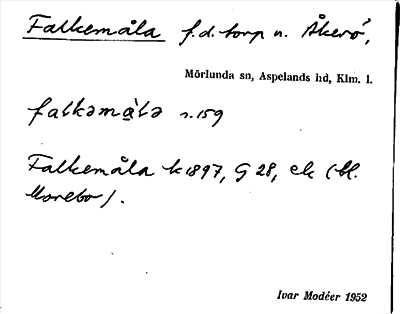 Falkemåla f.d. torp u. Åkerö,
Mörlunda sn, Aspelands hd, Klm. l.
falkəmå̀lə s. 159
Falkemåla k 1897, G 28, ek (bl.
Morebo).
Ivar Modéer 1952